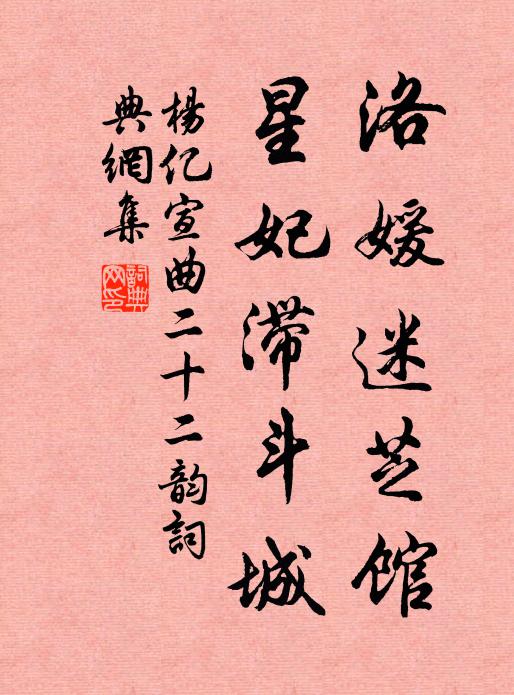 洛媛迷芝館
星妃滞斗城
楊亿宣曲二十二韵詞
典網集
詞典网印